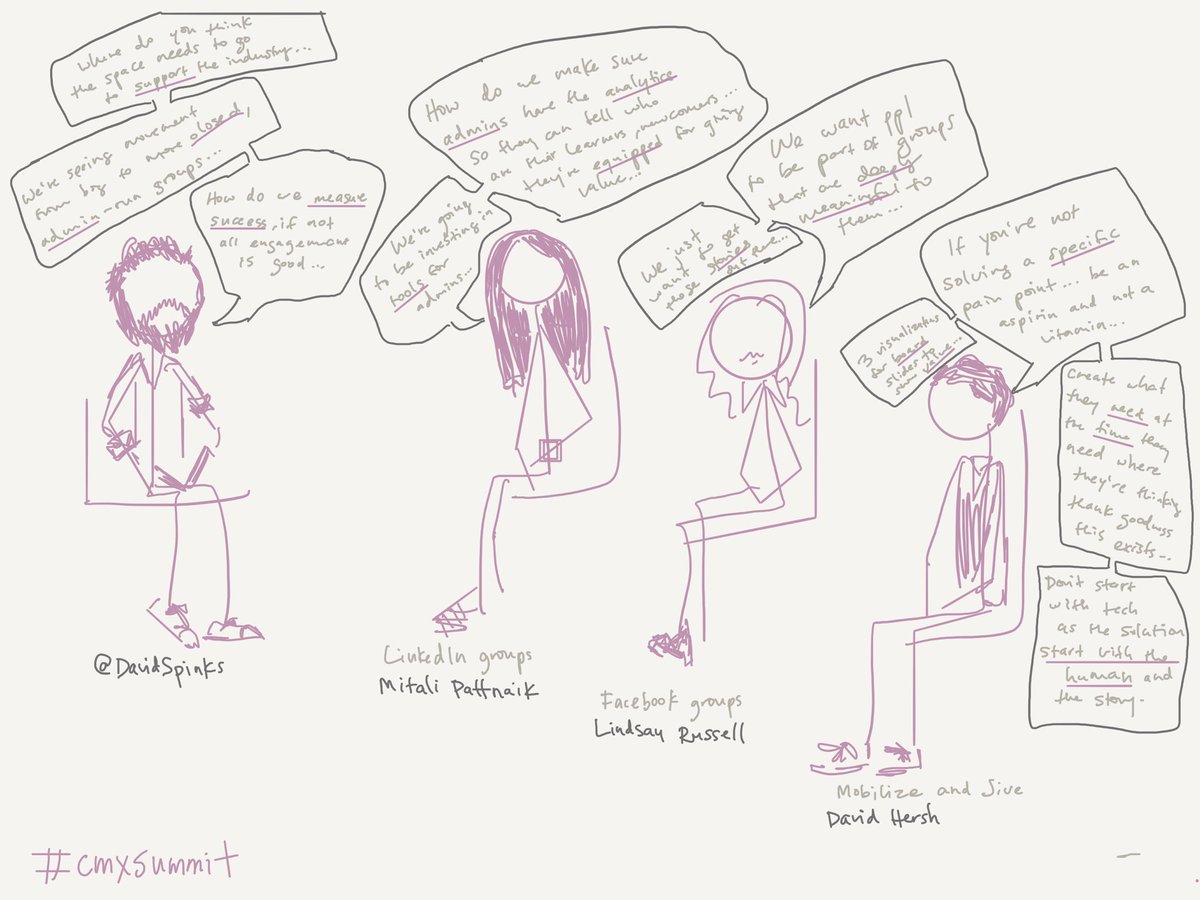 where do you think
the space needs to go
to support the industry...
We're seeing movement
from big to more closed,
admin-run groups...
How do we measure
success, if not
all engagement
is good...
@DavidSpinks
How do we make sure
admins have the analytics
so they can tell who
are their learners, newcomers...
they're equipped for giving
value...
We're going
to be investing in
tools for
admins...
LinkedIn groups
Mitali Pattnaik
We want ppl
to be part of groups
that are deeply
meaningful to
them...
We just
want to get
those stories
out more...
Facebook groups
Lindsay Russell
If you're not
solving a specific
pain point... be an
aspirin and not a
vitamin...
3 visualizations
for board
slides to
show value...
Create what
they need at
the time they
need where
they're thinking
thank goodness
this exists...
Don't start
with tech
as the solution
start with the
human and
the story.
Mobilize and Jive
David Hersh
#cmxsummit